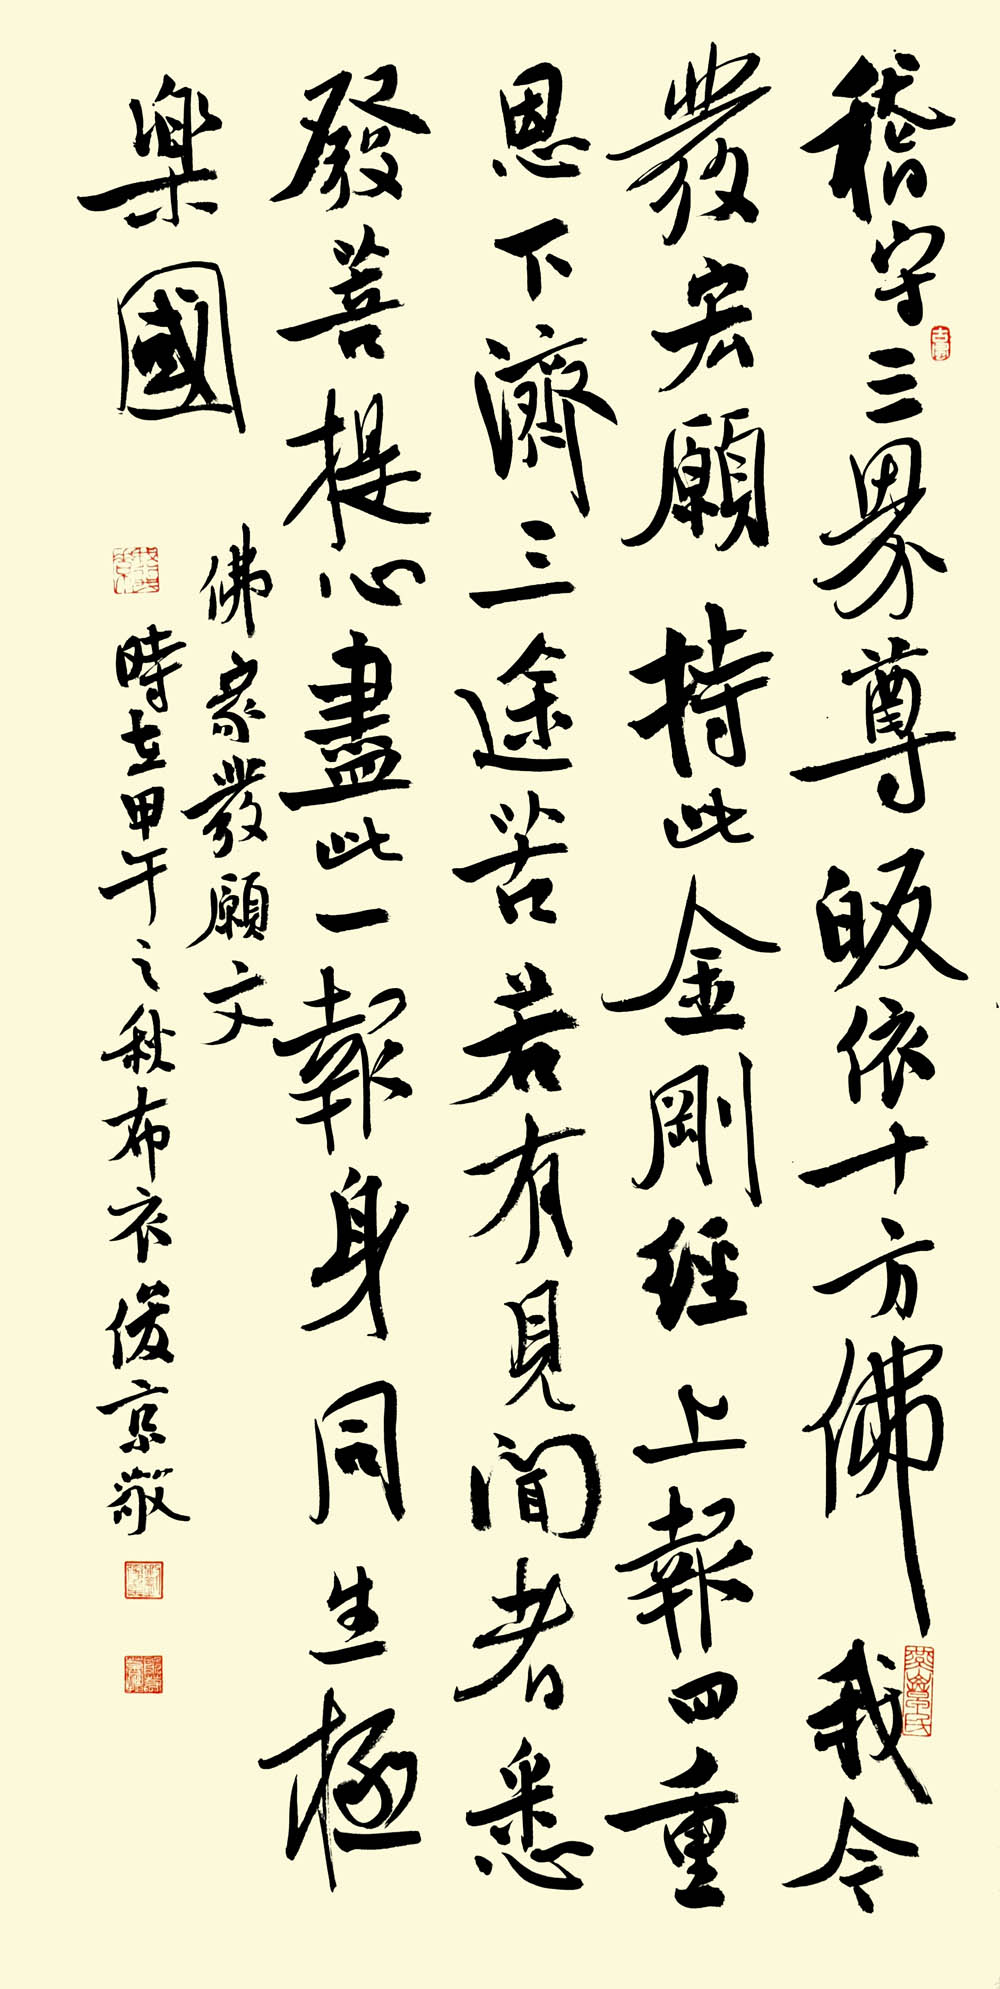 稽守三界尊皈依十方佛我令
發宏願持此金剛經上報四重
恩下濟三途苦若有見聞者悉
發菩提心盡此一報身同生極
樂國
佛家發願文
時在甲午之秋布衣俊京敬